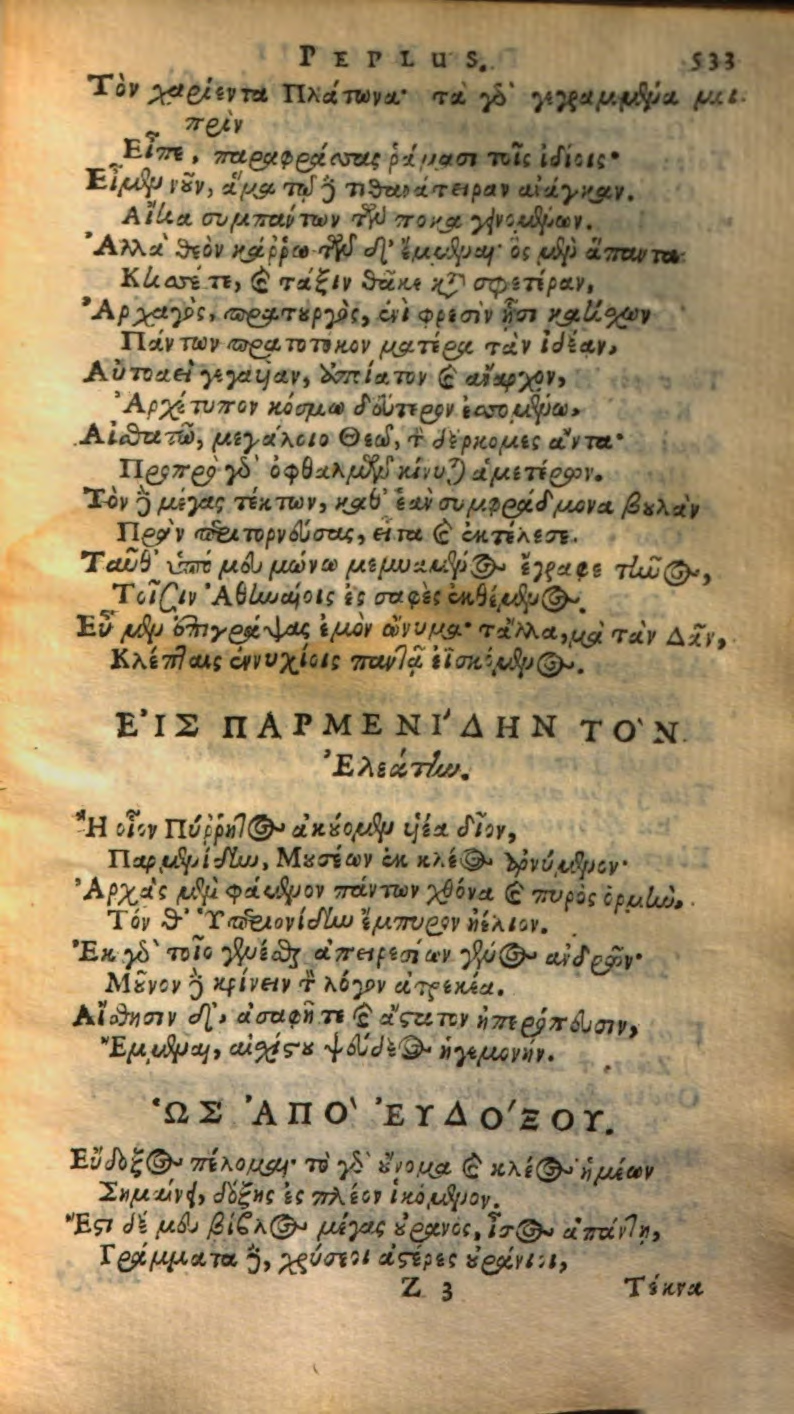 PEPLUS. 533
Τὸν χαρίεντα Πλάτωνα· τὰ γὸ γεγραμμένα μοι
πρὶν
Εἶπε, παραφράσσας ῥάμασι τοῖς ἰδίοις·
Εἰμὲν νῦν, ἅμα τῷ ἢ τιθανάτειραν ἀνάγκαν.
Αἰτία συμπαντων τῶν ποκα γινομένων.
Ἀλλὰ θεὸν κάῤῥω τῶν δ' ἔμμεναι· ὃς μὲν ἅπαντα
Κτίσέ τε, καὶ τάξιν θᾶκε κτ σφετέραν,
Ἀρχαγὸς, πρατουργὸς, ἐνὶ φρεσὶν ᾗσι κατίσχων
Πάντων πρατοτόκον ματέρα τὰν ἰδέαν,
Αὐτοαεὶ γεγαυῖαν, καὶ ἄναρχον,
Ἀρχέτυπον κόσμω δεύτερον ἑσπομένω,
Αἰσθατῶ, μεγάλοιο Θεῶ, τὸν δέρκομες ἄντα·
Προπρὸ γὸ ὀφθαλμῶν κίνυται ἁμετέρων.
Τὸν δὲ μέγας τέκτων, καθ' ἑὰν συμφράδμονα βουλὰν
Πρὰν περιτορνεύσας, εἶτα καὶ ἐκτέλεσε.
Ταῦθ' ὑπό μευ μώνω μεμυαμένος ἔγραφε τῆνος,
Τοῖσιν Ἀθηναίοις ἐς σαφὲς ἐκθέμενος.
Εὖ μὲν ἐπιγράψας ἐμὸν ὤνυμα· τἄλλα, μὰ τὰν Δᾶν,
Κλέπταις ἐννυχίοις παντᾶ ἐϊσκόμενος.
ἘΙΣ ΠΑΡΜΕΝΙ΄ΔΗΝ ΤΟ`Ν
Ἐλεάτην.
Ἢ οἷον Πύρρητος ἀκούομεν υἱέα δῖον,
Παρμενίδην, Μουσέων ἐκ κλέος ἀρνύμενον·
Ἀρχὰς μὲν φάμενον πάντων χθόνα καὶ πυρὸς ὁρμήν.
Τόν θ' Ὑπεριονίδην ἔμπυρον ἠέλιον.
Ἐκ γὸ τοῖο γενέσθαι ἀπειρεσίων γένος ἀνδρῶν·
Μοῦνον δὲ κρίνειν τὸν λόγον ἀτρεκέα.
Αἴσθησιν δ', ἀσαφῆ τε καὶ ἄστατον ἠπερόπευσιν,
Ἔμμεναι, αἰσχίστου ψεύδεος ἡγεμονήν.
ὩΣ ἈΠΟ` ἘΥΔΟ΄ΞΟΥ.
Εὔδοξος πέλομαι· τὸ γὸ οὔνομα καὶ κλέος ἡμέων
Σημαίνει, δόξης ἐς πλέον ἱκόμενον.
Ἔστι δέ μευ βίβλος μέγας οὐρανὸς, ἶσος ἁπάντη,
Γράμματα δὲ, χρύσεοι ἀστέρες οὐράνιοι,
Z 3 Τέκνα